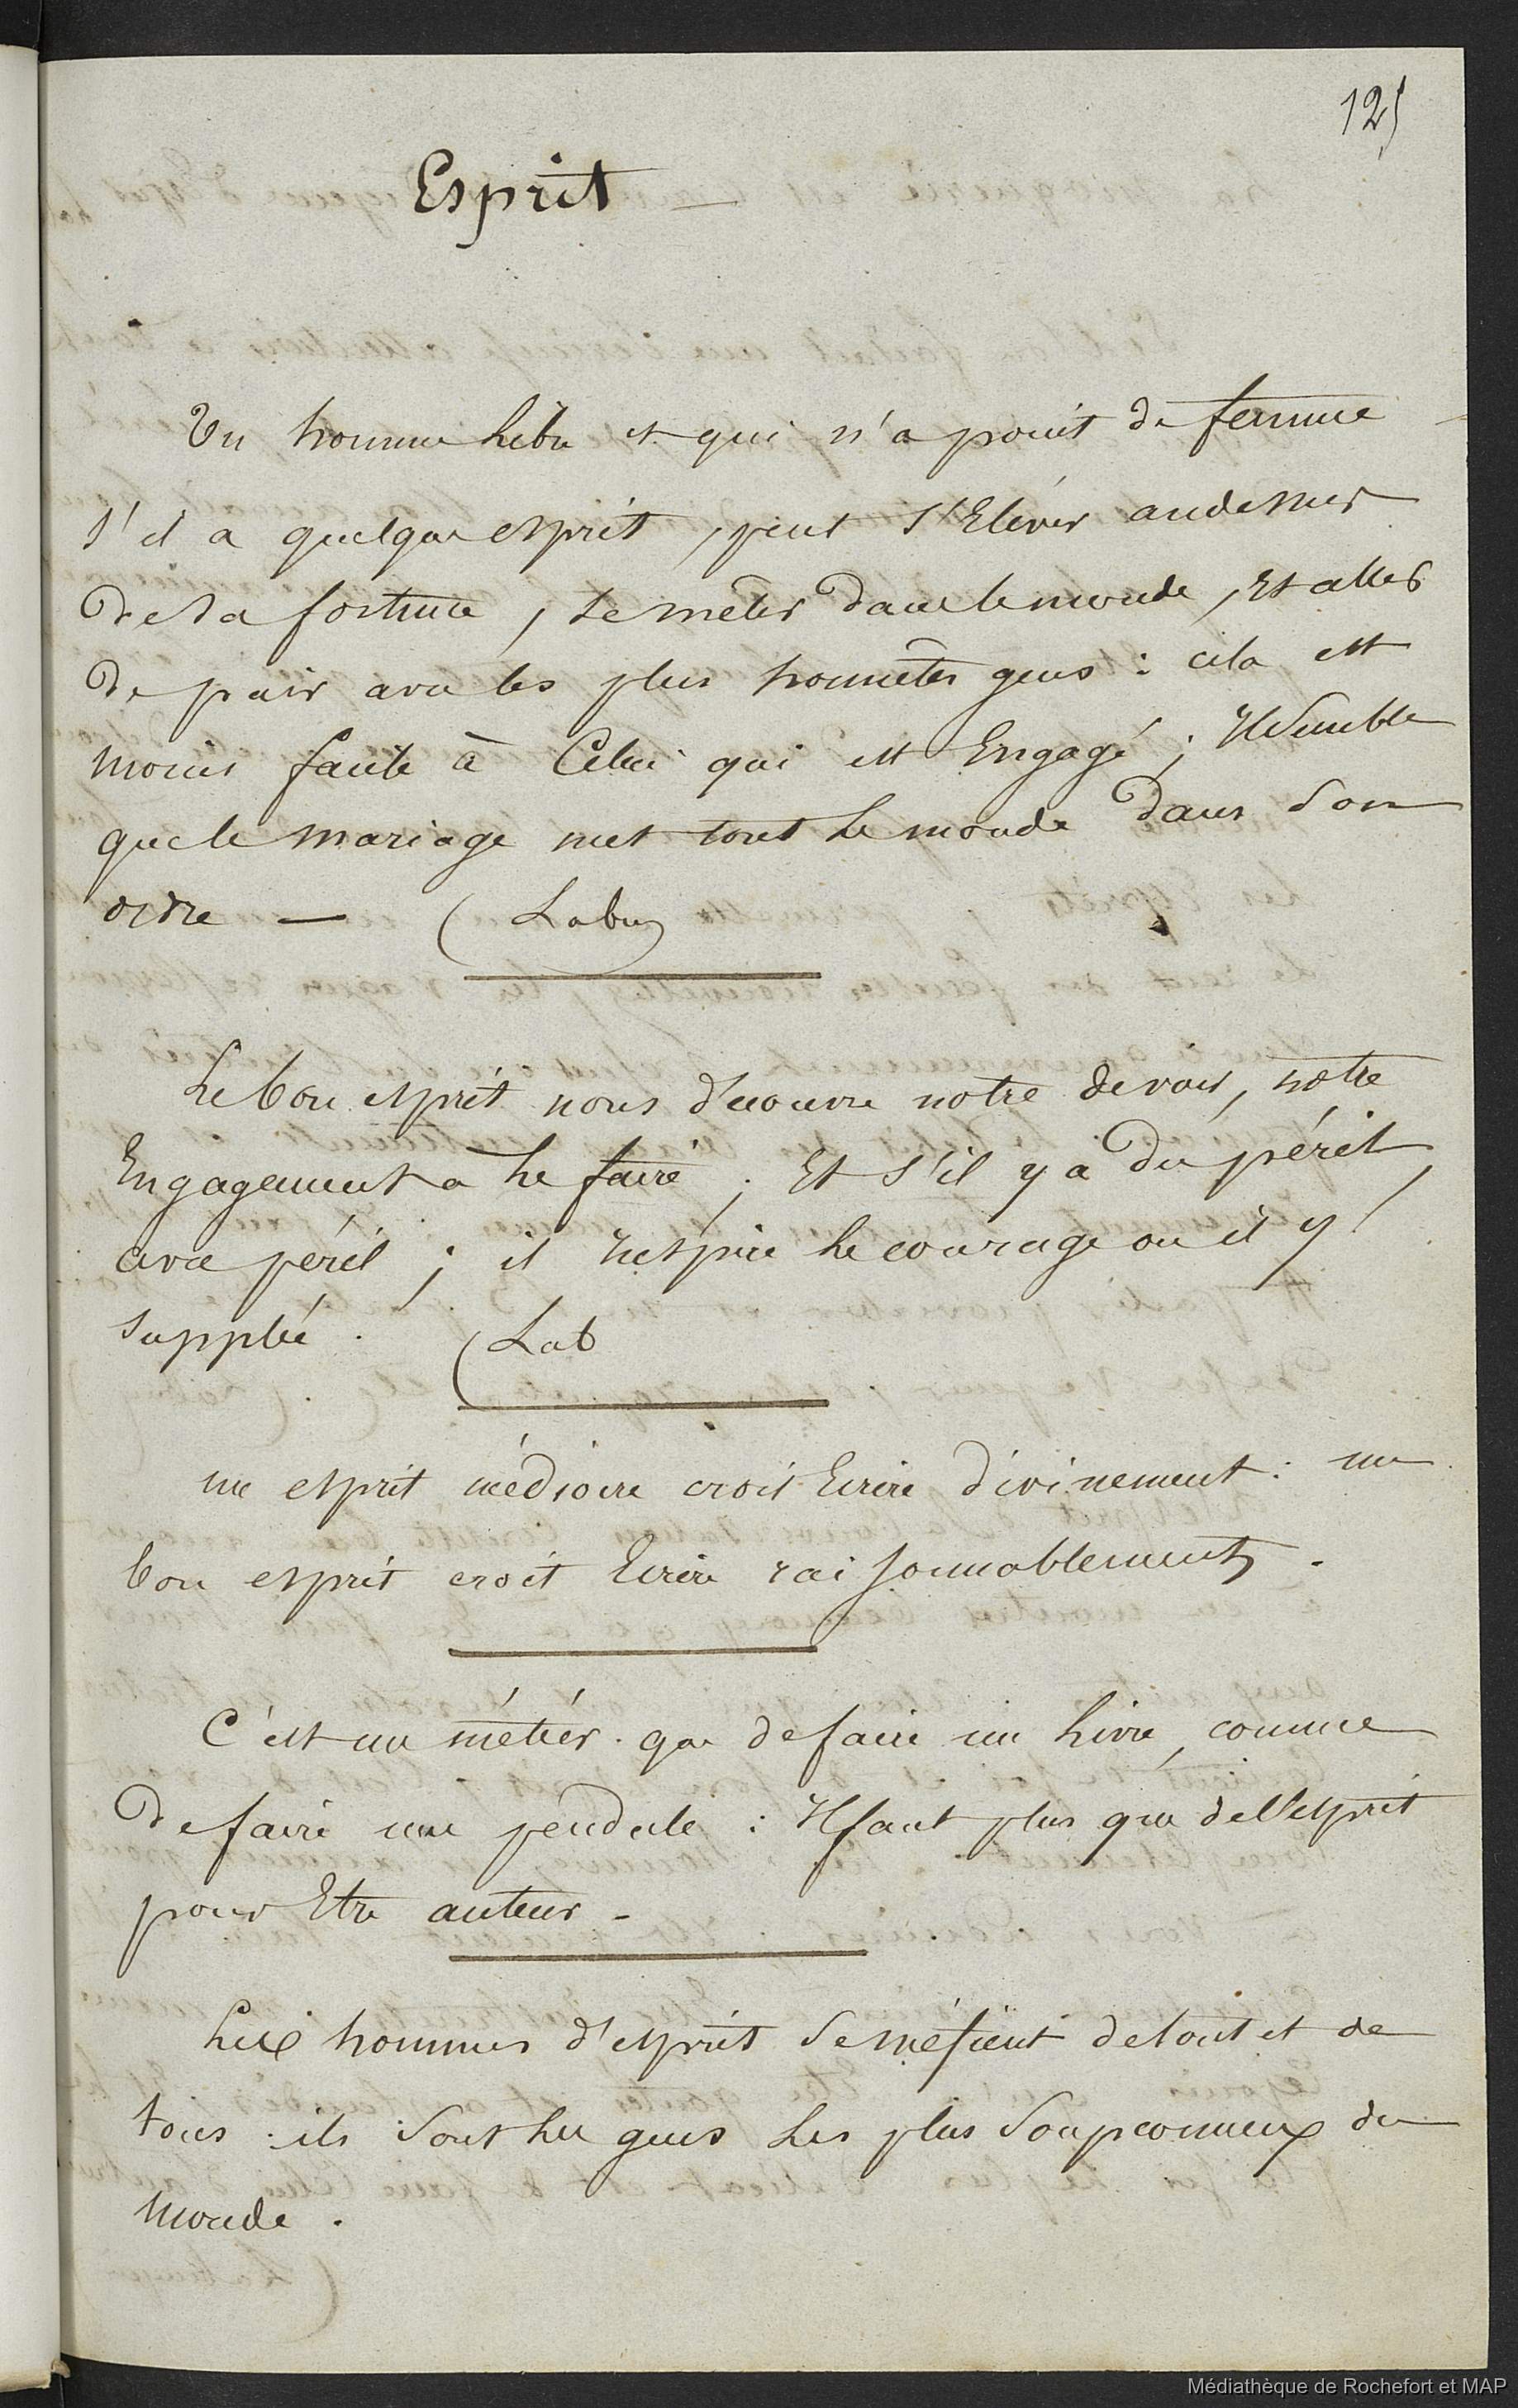 125
Esprit —
Un homme libre et qui n'a point de femme
s'il a quelque esprit, peut s'Elever audessus
de sa fortune, se mêler dans le monde, Et aller
de pair avec les plus honnêtes gens : cela est
moins facile à Celui qui est Engagé ; Il semble
que le mariage met tout le monde dans son
ordre — (Labruy
Le bon esprit nous découvre notre devoir, notre
Engagement a le faire ; Et s'il y a du péril,
avec péril ; il inspire le courage ou il y
supplée . (Lab
un esprit médiocre croit Ecrire divinement : un
bon esprit croit Ecrire raisonnablement .
C'est un métier que de faire un livre, comme
de faire une pendule : Il faut plus que de l'esprit
pour Etre auteur -
Les hommes d'esprit se méfient de tout et de
tous . ils sont les gens les plus soupconneux du
monde .
Médiathèque de Rochefort et MAP